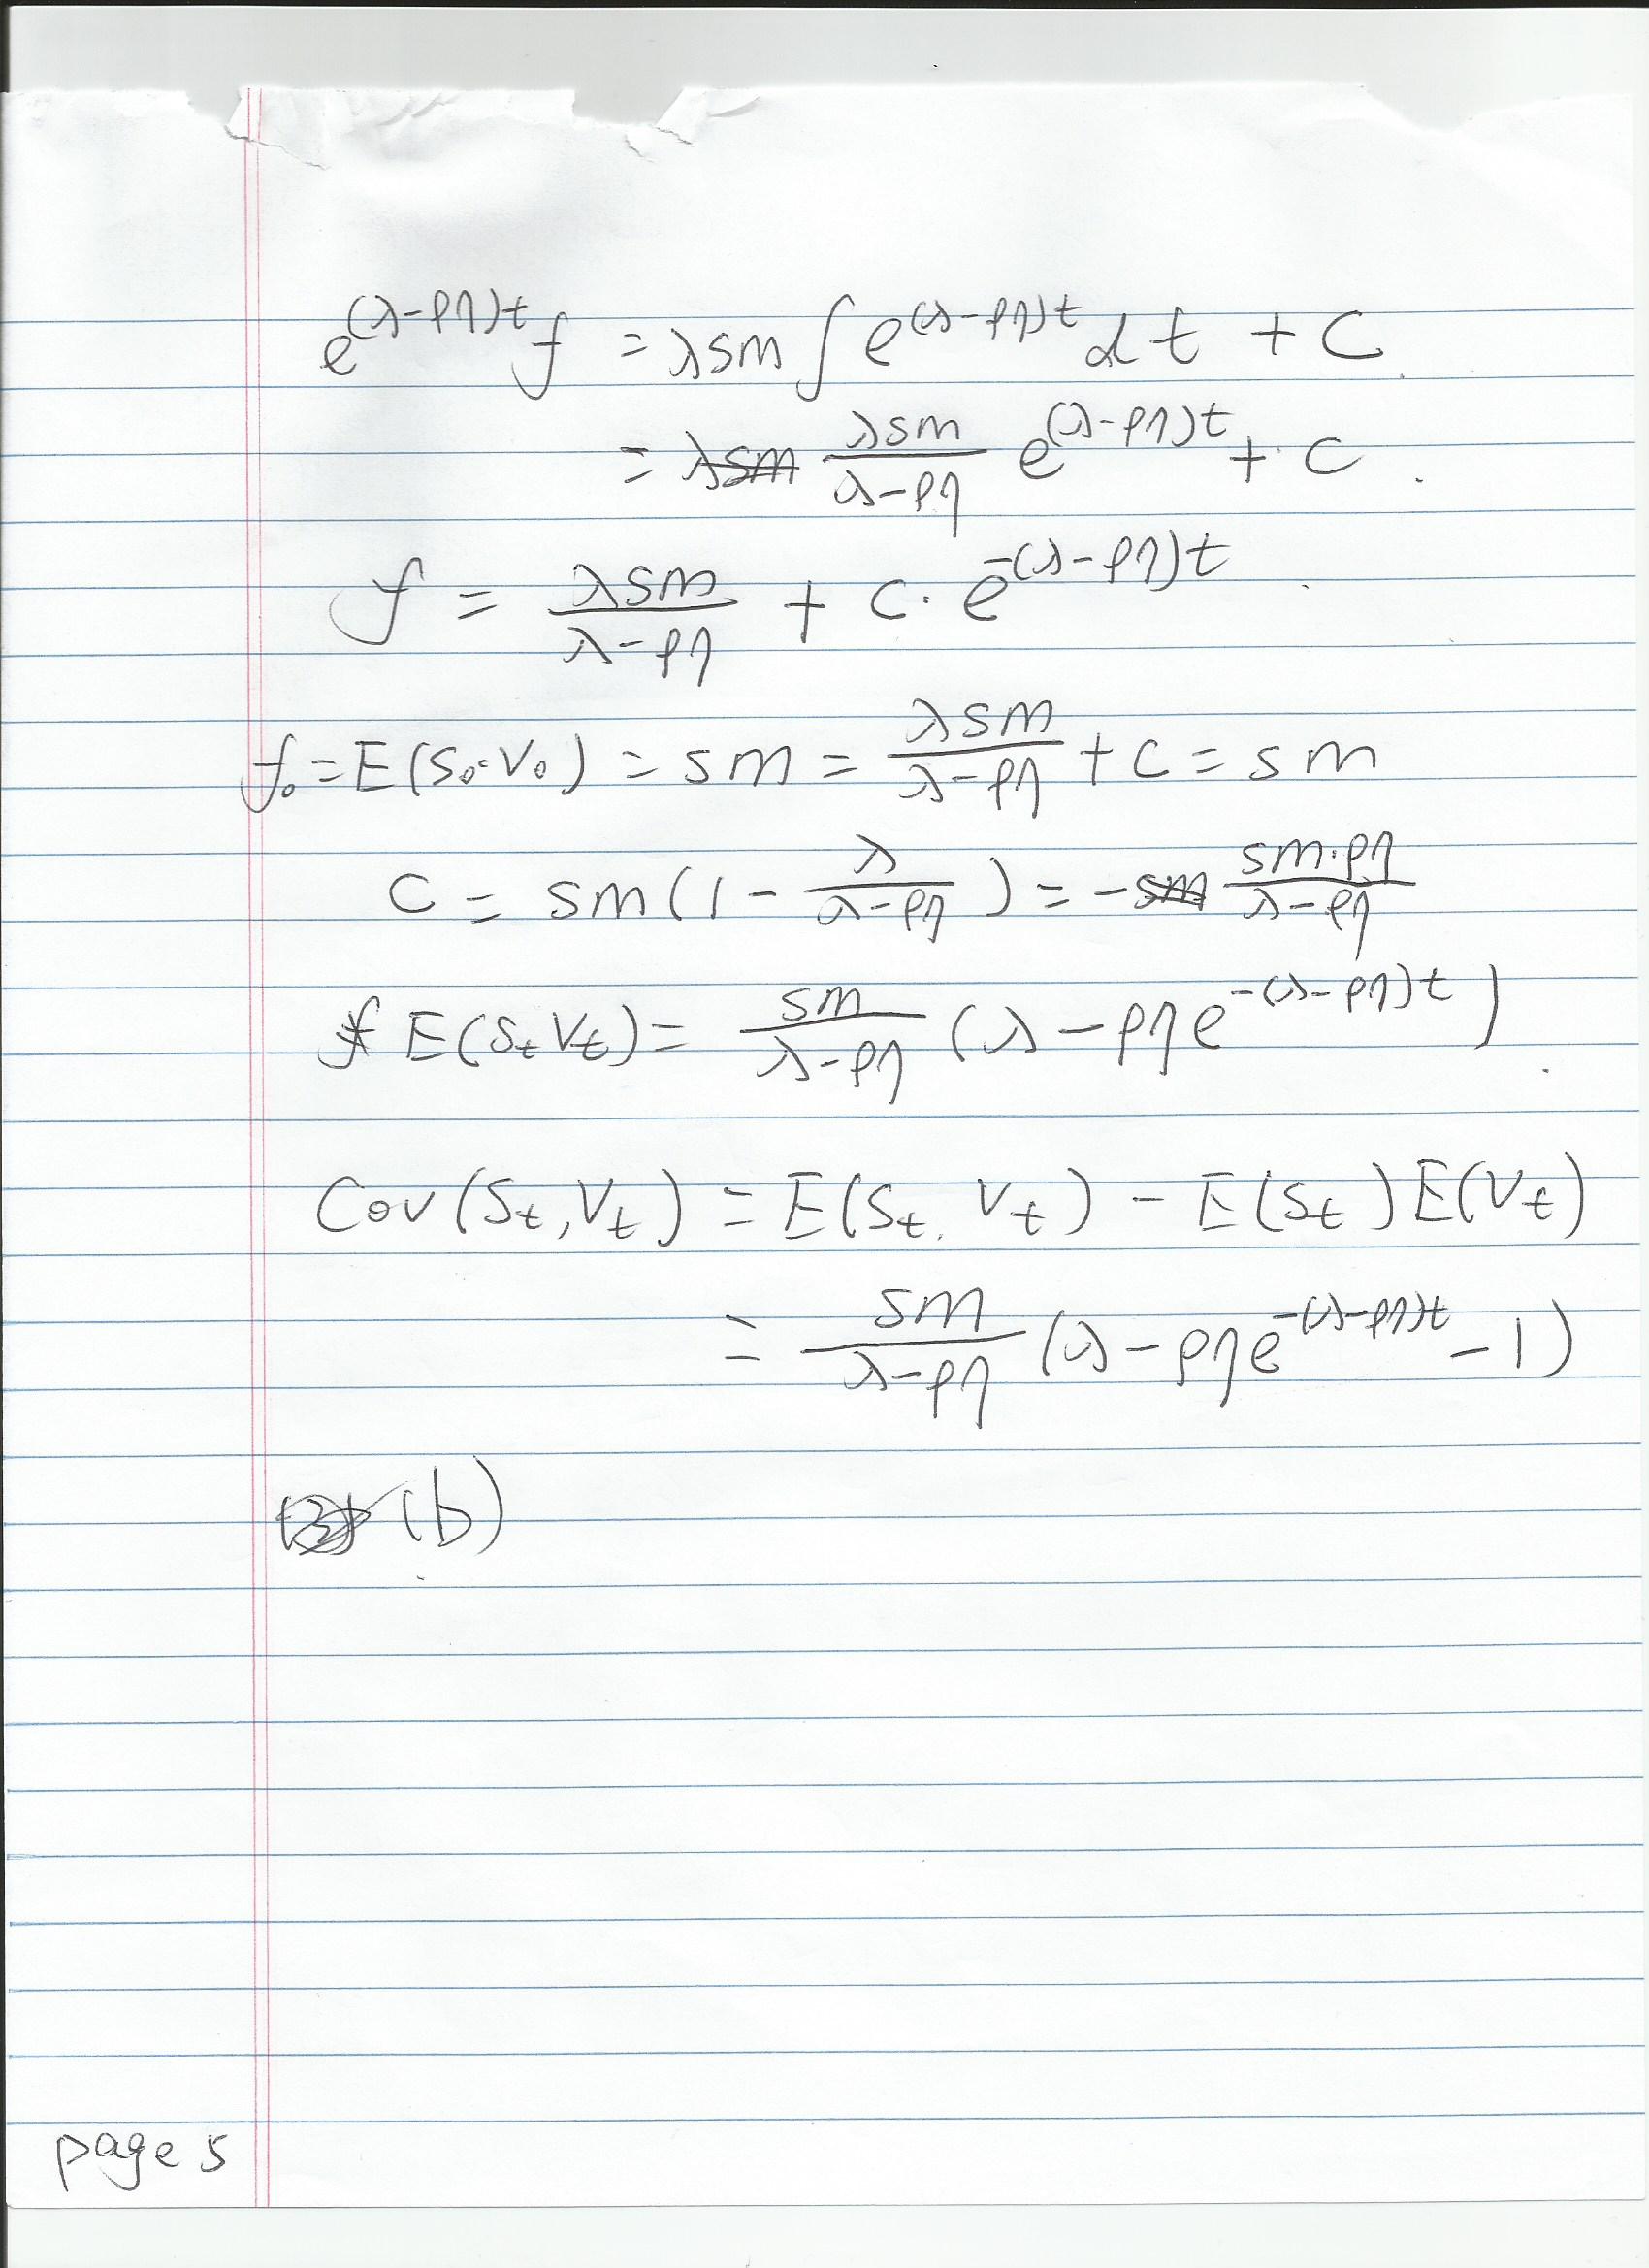 e^{(λ-ρη)t} f = λsm ∫ e^{(λ-ρη)t} dt + C
= λsm \frac{λsm}{λ-ρη} e^{(λ-ρη)t} + C.
f = \frac{λsm}{λ-ρη} + C · e^{-(λ-ρη)t}.
f_0 = E(S_0·V_0) = sm = \frac{λsm}{λ-ρη} + C = sm
C = sm(1 - \frac{λ}{λ-ρη}) = -sm \frac{sm·ρη}{λ-ρη}
f E(S_t V_t) = \frac{sm}{λ-ρη} (λ - ρηe^{-(λ-ρη)t}).
Cov(S_t, V_t) = E(S_t. V_t) - E(S_t)E(V_t)
= \frac{sm}{λ-ρη} (λ - ρηe^{-(λ-ρη)t} - 1)
(b)
page 5